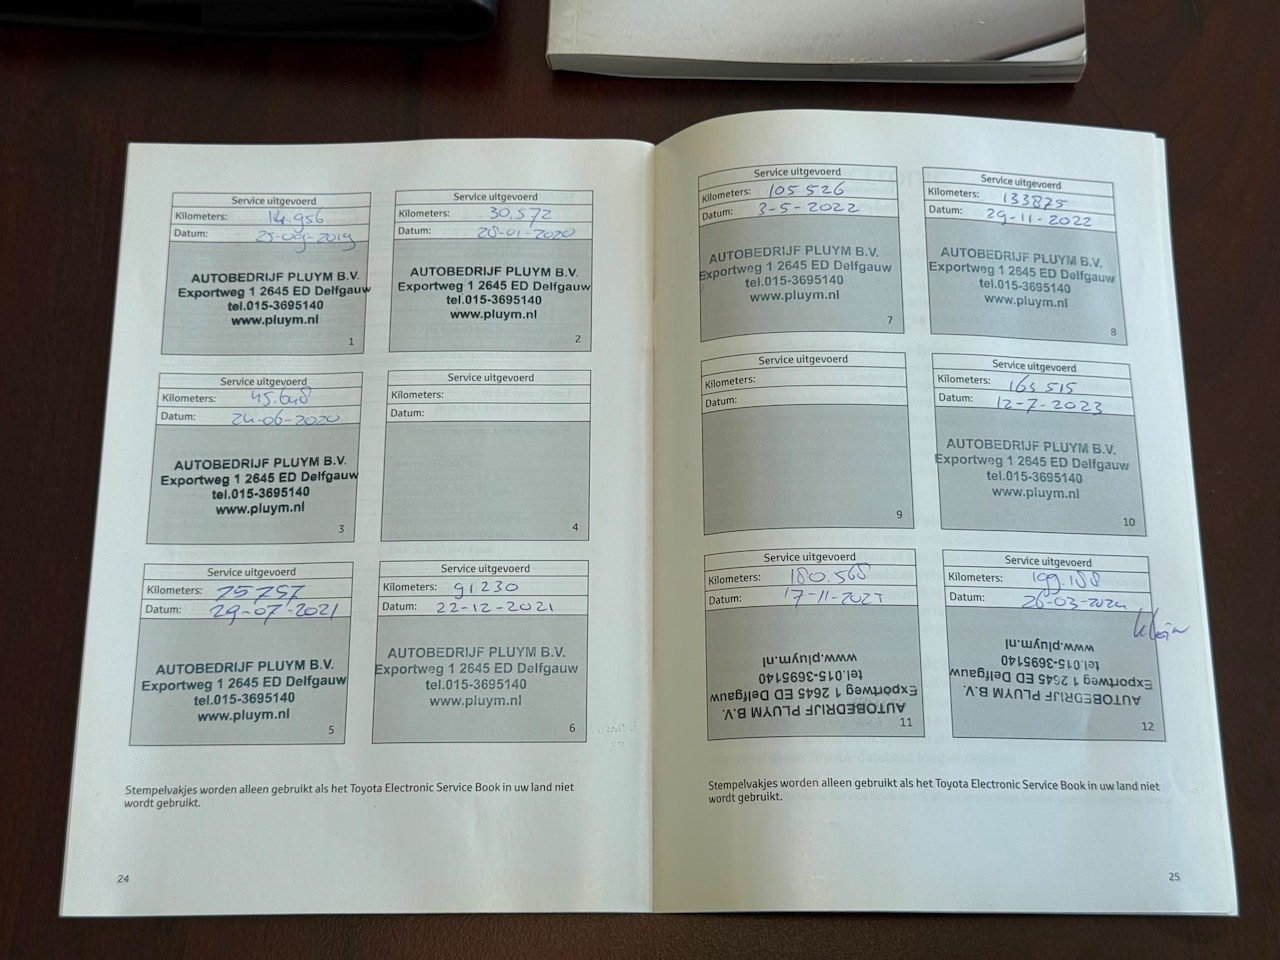 Service uitgevoerd
Kilometers: 14.956
Datum: 25-09-2019
AUTOBEDRIJF PLUYM B.V.
Exportweg 1 2645 ED Delfgauw
tel.015-3695140
www.pluym.nl
1
Service uitgevoerd
Kilometers: 30.572
Datum: 28-01-2020
AUTOBEDRIJF PLUYM B.V.
Exportweg 1 2645 ED Delfgauw
tel.015-3695140
www.pluym.nl
2
Service uitgevoerd
Kilometers: 45.648
Datum: 24-06-2020
AUTOBEDRIJF PLUYM B.V.
Exportweg 1 2645 ED Delfgauw
tel.015-3695140
www.pluym.nl
3
Service uitgevoerd
Kilometers:
Datum:
4
Service uitgevoerd
Kilometers: 75757
Datum: 29-07-2021
AUTOBEDRIJF PLUYM B.V.
Exportweg 1 2645 ED Delfgauw
tel.015-3695140
www.pluym.nl
5
Service uitgevoerd
Kilometers: 91230
Datum: 22-12-2021
AUTOBEDRIJF PLUYM B.V.
Exportweg 1 2645 ED Delfgauw
tel.015-3695140
www.pluym.nl
6
Stempelvakjes worden alleen gebruikt als het Toyota Electronic Service Book in uw land niet
wordt gebruikt.
24
Service uitgevoerd
Kilometers: 105526
Datum: 3-5-2022
AUTOBEDRIJF PLUYM B.V.
Exportweg 1 2645 ED Delfgauw
tel.015-3695140
www.pluym.nl
7
Service uitgevoerd
Kilometers: 133875
Datum: 29-11-2022
AUTOBEDRIJF PLUYM B.V.
Exportweg 1 2645 ED Delfgauw
tel.015-3695140
www.pluym.nl
8
Service uitgevoerd
Kilometers:
Datum:
9
Service uitgevoerd
Kilometers: 165 515
Datum: 12-7-2023
AUTOBEDRIJF PLUYM B.V.
Exportweg 1 2645 ED Delfgauw
tel.015-3695140
www.pluym.nl
10
Service uitgevoerd
Kilometers: 180.568
Datum: 17-11-2023
AUTOBEDRIJF PLUYM B.V.
Exportweg 1 2645 ED Delfgauw
tel.015-3695140
www.pluym.nl
11
Service uitgevoerd
Kilometers: 199.188
Datum: 26-03-2024
AUTOBEDRIJF PLUYM B.V.
Exportweg 1 2645 ED Delfgauw
tel.015-3695140
www.pluym.nl
12
Stempelvakjes worden alleen gebruikt als het Toyota Electronic Service Book in uw land niet
wordt gebruikt.
25